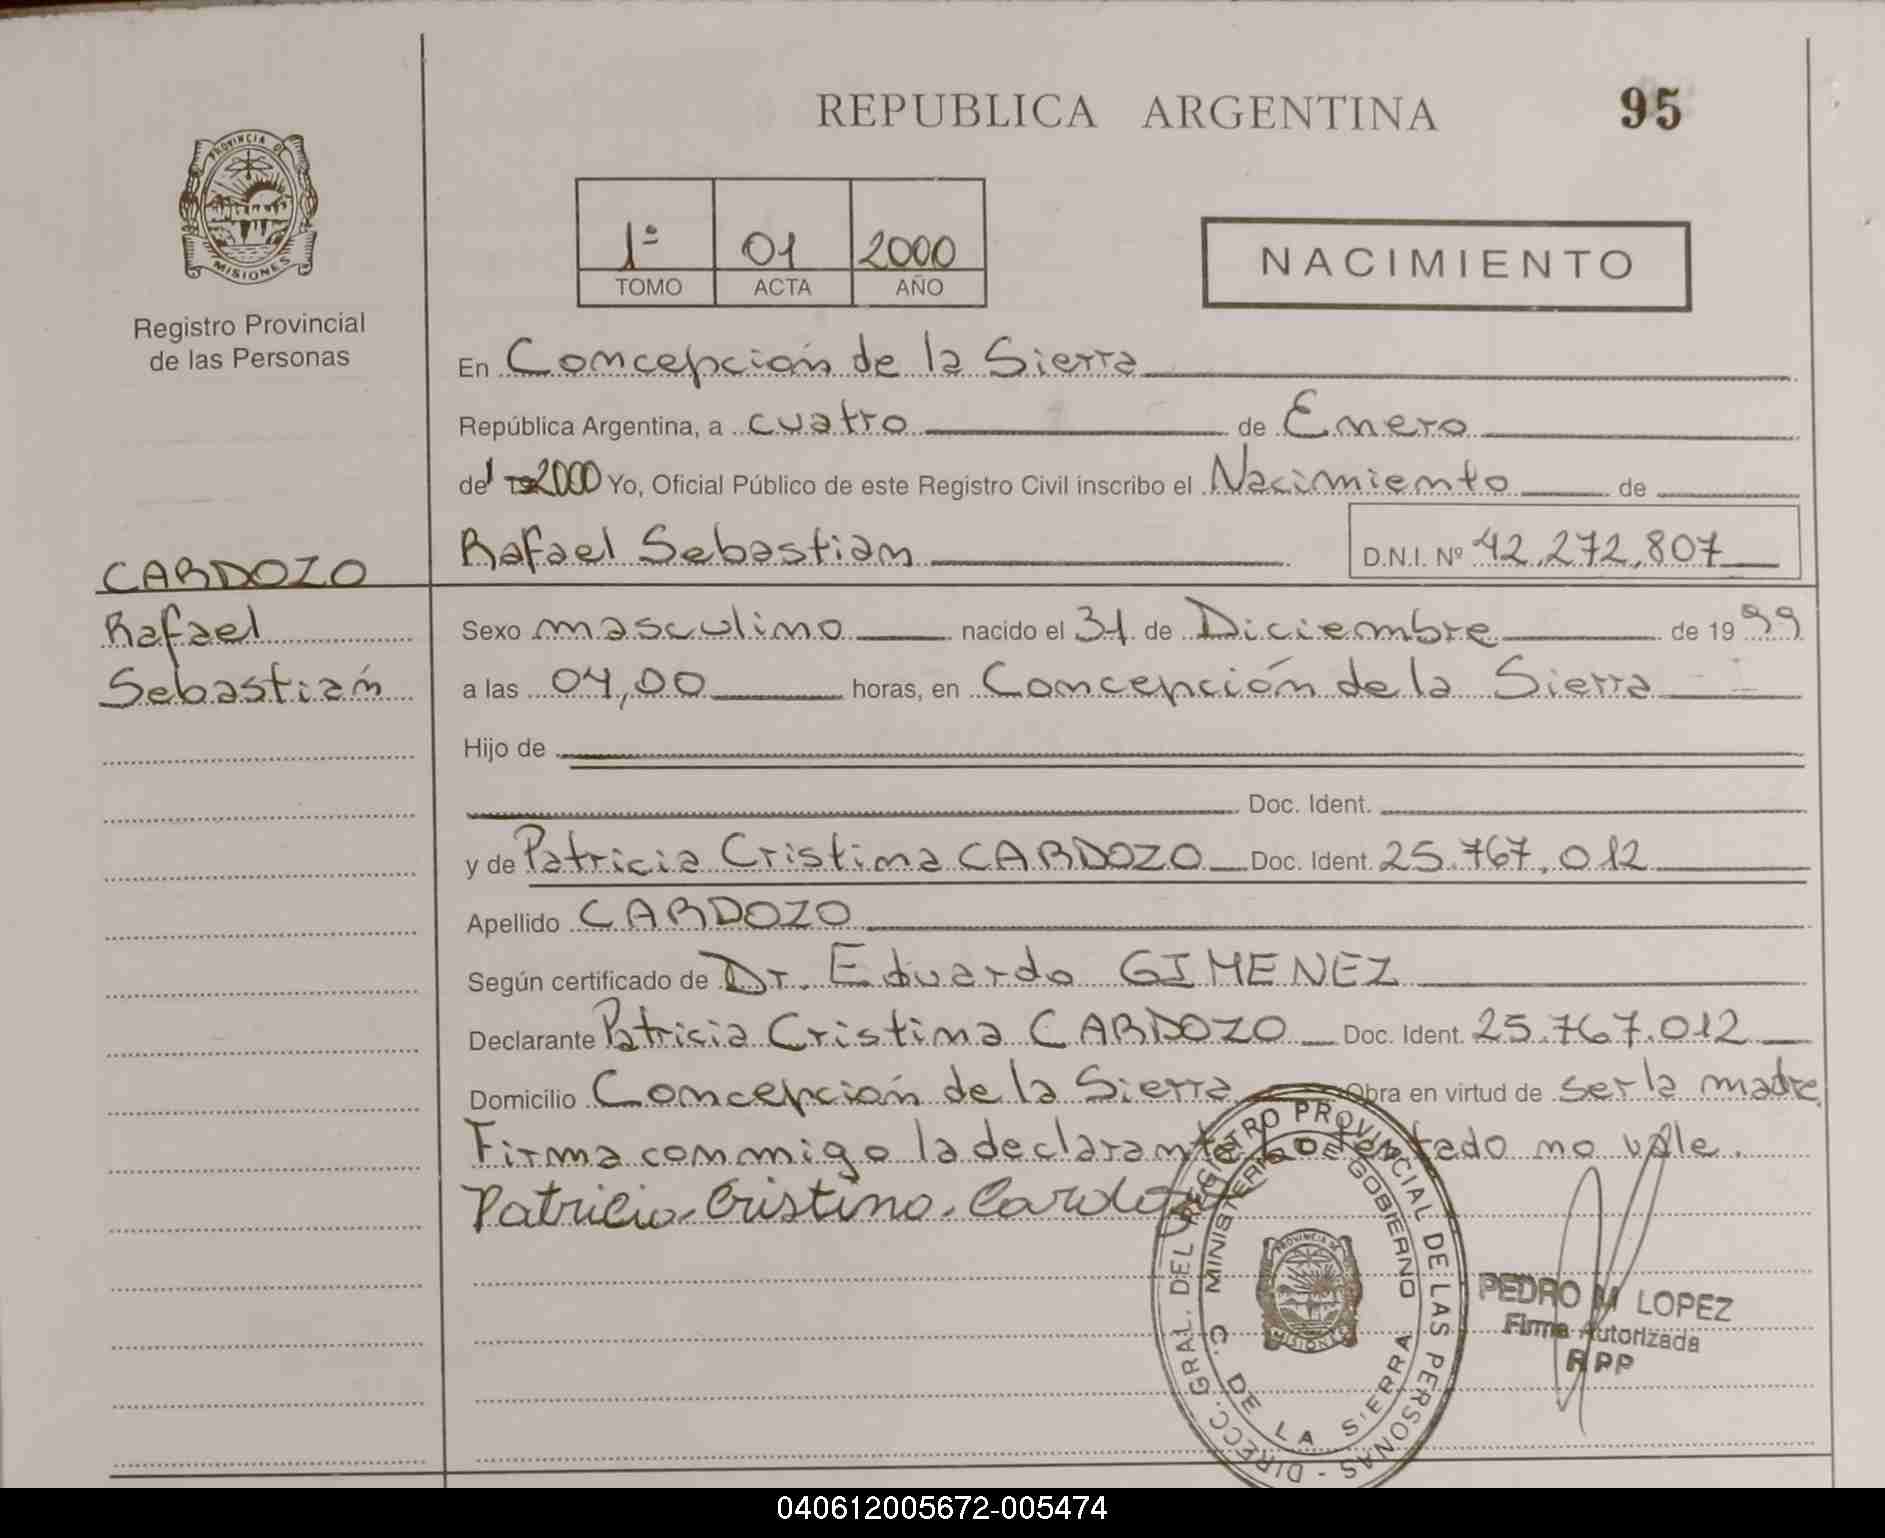 REPUBLICA ARGENTINA
95
PROVINCIA DE
MISIONES
Registro Provincial
de las Personas
1ª 01 2000
TOMO ACTA AÑO
NACIMIENTO
En Concepción de la Sierra
República Argentina, a cuatro de Enero
de 2000 Yo, Oficial Público de este Registro Civil inscribo el Nacimiento de
Rafael Sebastian D.N.I. Nº 42.272.807
CARDOZO
Rafael
Sebastián
Sexo masculino nacido el 31 de Diciembre de 1999
a las 04,00 horas, en Concepción de la Sierra
Hijo de
Doc. Ident.
y de Patricia Cristina CARDOZO Doc. Ident. 25.767.012
Apellido CARDOZO
Según certificado de Dr. Eduardo GIMENEZ
Declarante Patricia Cristina CARDOZO Doc. Ident. 25.767.012
Domicilio Concepción de la Sierra Obra en virtud de ser la madre
Firma conmigo la declarante Lo testado no vale.
Patricia Cristina Cardozo
DIRECC. GRAL. DEL REGISTRO PROVINCIAL DE LAS PERSONAS -
MINISTERIO DE GOBIERNO
C. DE LA SIERRA
PROVINCIA DE
MISIONES
PEDRO M LOPEZ
Firma Autorizada
RPP
040612005672-005474